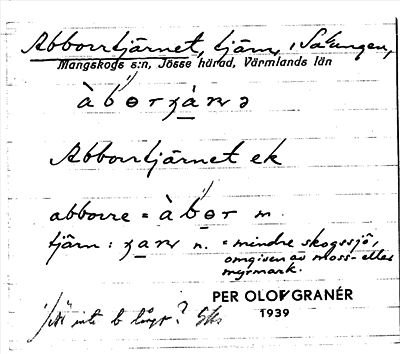 Abborrtjärnet, tjärn, i Salungen,
Mangskogs s:n, Jösse härad, Värmlands län
Abborrtjärnet ek
abborre = m.
tjärn: n. = mindre skogssjö,
omgiven av moss- eller
myrmark.
PER OLOF GRANÉR
1939
inte b långt?